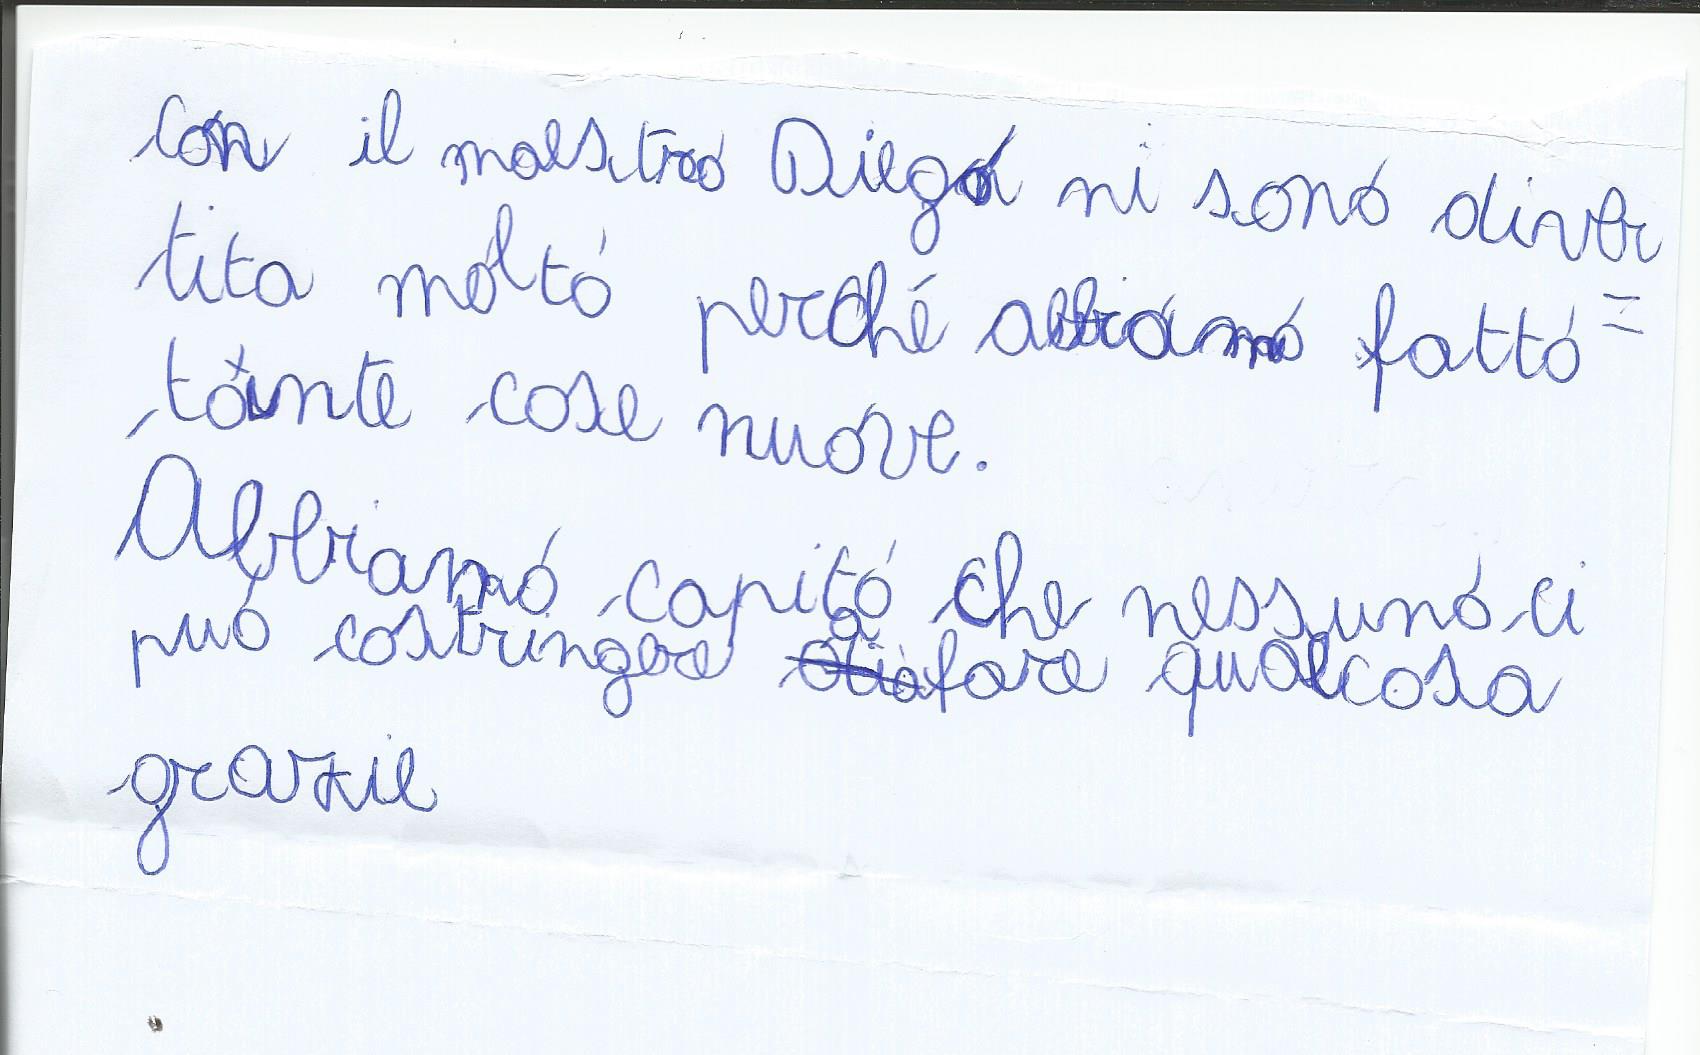 con il maestro Diego ni sono diver=
tita molto perché abbiamo fatto
tante cose nuove.
Abbiamo capito che nessuno ci
può costringere a fare qualcosa
grazie